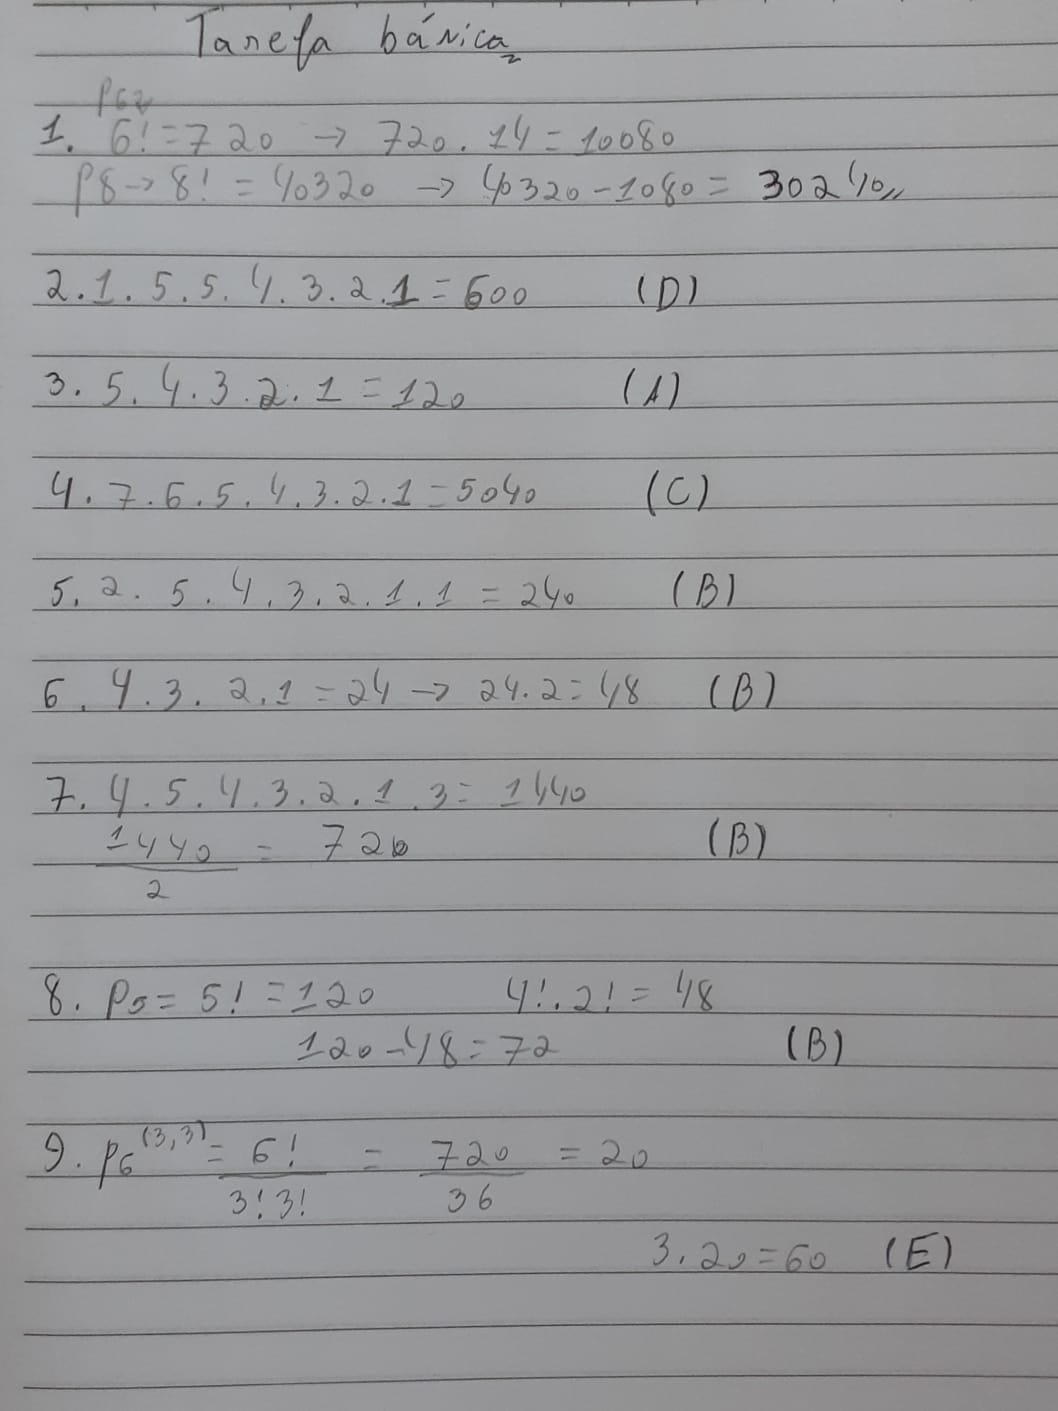 Tarefa básica
P62
1. 6! = 720 → 720 . 14 = 10080
P8 → 8! = 40320 → 40320 - 1080 = 30240
2. 1. 5. 5. 4. 3. 2. 1 = 600 (D)
3. 5. 4. 3. 2. 1 = 120 (A)
4. 7. 6. 5. 4. 3. 2. 1 = 5040 (C)
5. 2. 5. 4. 3. 2. 1. 1 = 240 (B)
6. 4. 3. 2. 1 = 24 → 24. 2 = 48 (B)
7. 4. 5. 4. 3. 2. 1. 3 = 1440
1440 = 720 (B)
2
8. P5 = 5! = 120 4!. 2! = 48
120 - 48 = 72 (B)
9. P6 (3,3) = 6! = 720 = 20
3! 3! 36
3. 20 = 60 (E)